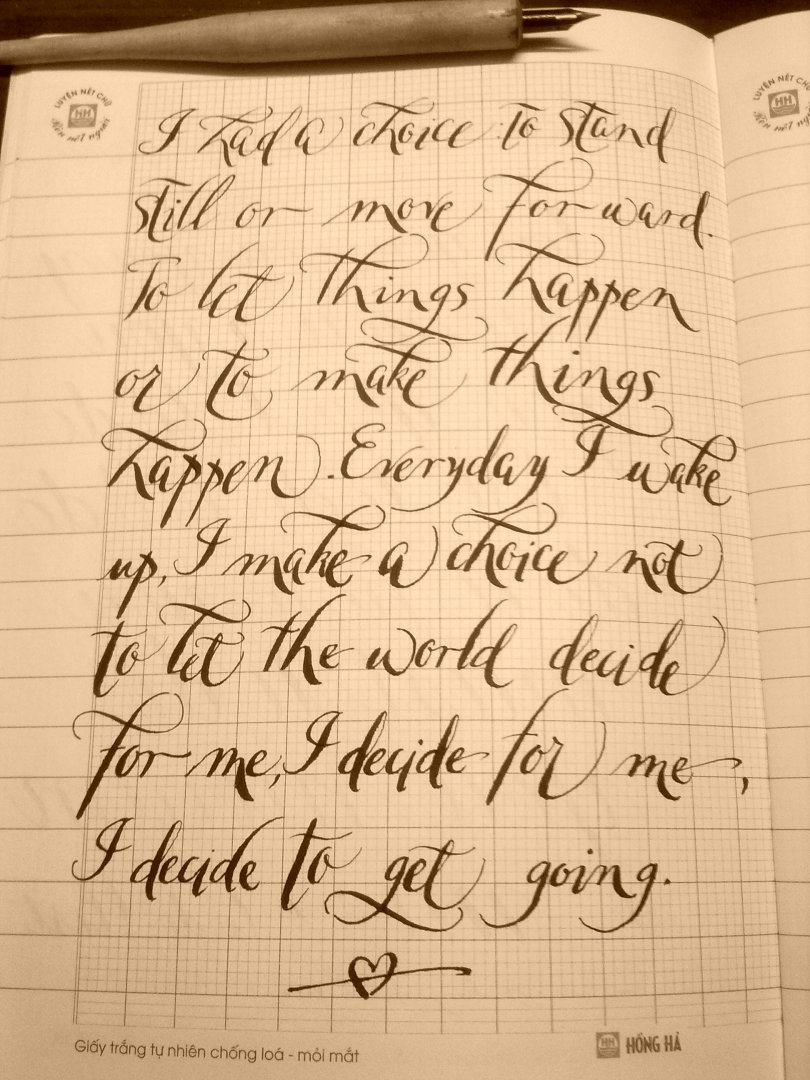 LUYỆN NÉT CHỮ
HH
Rèn nết người
LUYỆN NÉT CHỮ
HH
Rèn nết người
I had a choice to stand
still or move forward.
To let things happen
or to make things
happen. Everyday I wake
up, I make a choice not
to let the world decide
for me, I decide for me,
I decide to get going.
Giấy trắng tự nhiên chống loá - mỏi mắt
HH HỒNG HÀ